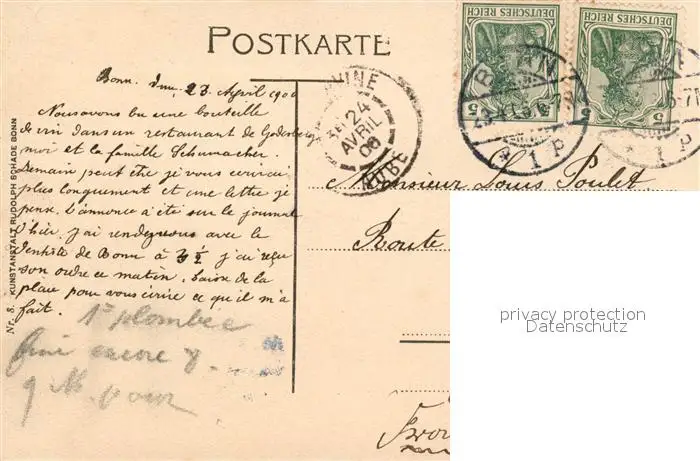 POSTKARTE
DEUTSCHES REICH
DEUTSCHES REICH
5
5
5
BONN
1 p
1 p
24
AVRIL
06
AUBE
Bonn. 23 April 190
Nous avons bu une bouteille
de vin dans un restaurant de Godesberg
moi et la famille Schumacher.
Demain peut être je vous écrirai
plus longuement et une lettre je
pense. L'annonce a été sur le journal
d'hier. J'ai rendezvous avec le
dentiste de Bonn à 3 ½ j'ai reçu
son ordre ce matin. Laisse de la
place pour vous écrire ce qu'il m'a
fait.
1e plombée
encore 8
9 pour
Monsieur Louis Poulet
Route
Nr. 8. KUNSTANSTALT RUDOLPH SCHADE BONN
privacy protection
Datenschutz